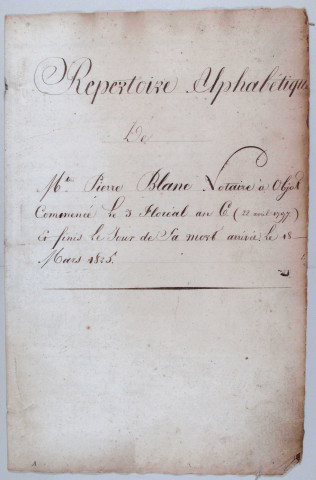 Répertoire Alphabétique
De
Mtre Pierre Blanc Notaire à
Commencé le 3 Floréal an (22 avril 1797)
Et finis le Jour de Sa mort arrivée le 18
Mars 1825.